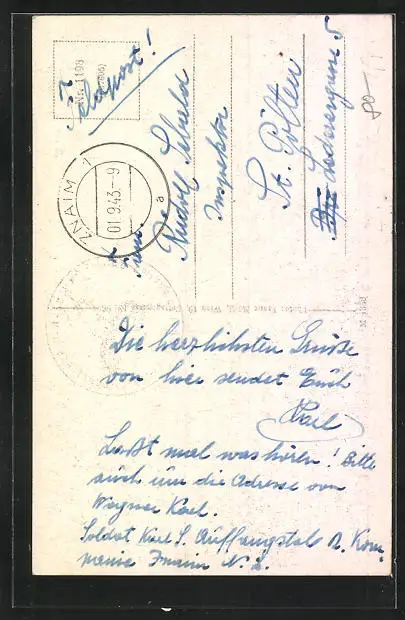 Feldpost!
Nr. 1198
ZNAIM 1
01.9.43-9
a
Fam.
Rudolf
Inspektor
St. Pölten
Lederergasse 5
80-
Die herzlichsten Grüße
von hier sendet Euch
Karl
Laßt mal was hören! Bitte
auch um die Adresse von
Wagner Karl.
Soldat Karl S. Auffangstab
Znaim N.